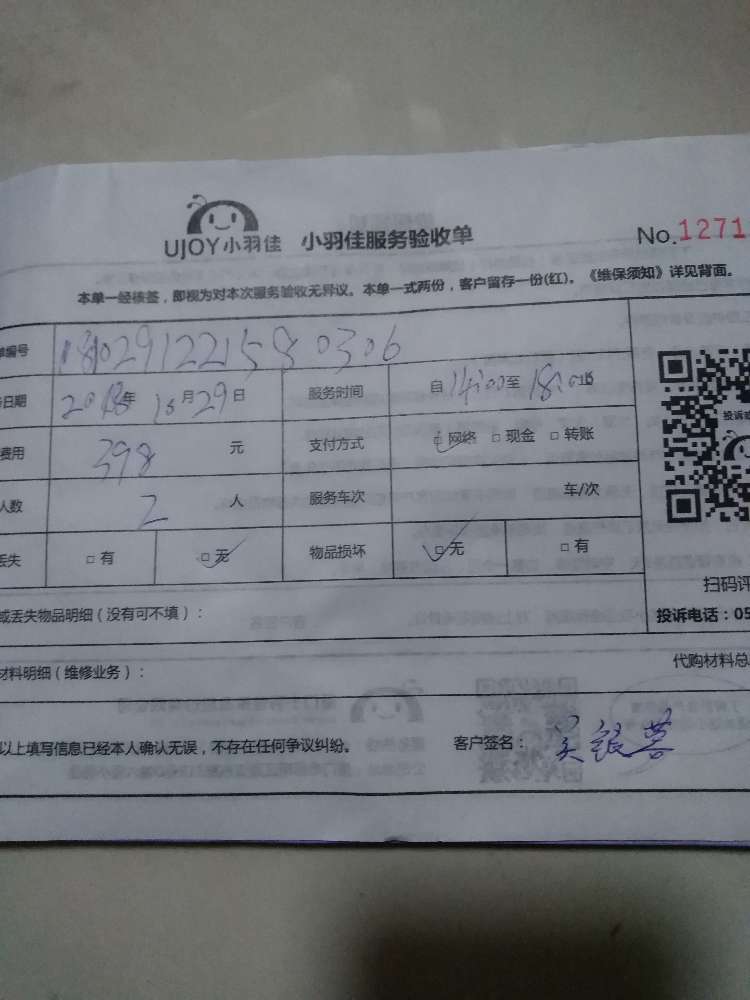 UJOY小羽佳 小羽佳服务验收单 No.1271
本单一经核签，即视为对本次服务验收无异议。本单一式两份，客户留存一份(红)。《维保须知》详见背面。
单编号 181029122158 0306
日期 2018年 10月29日 服务时间 自14:00至18:00止
费用 398 元 支付方式 □网络 □现金 □转账
人数 2 人 服务车次 车/次
丢失 □有 □无 物品损坏 □无 □有
投诉
扫码评
或丢失物品明细（没有可不填）：
投诉电话：05
材料明细（维修业务）：
代购材料总
以上填写信息已经本人确认无误，不存在任何争议纠纷。 客户签名：吴银